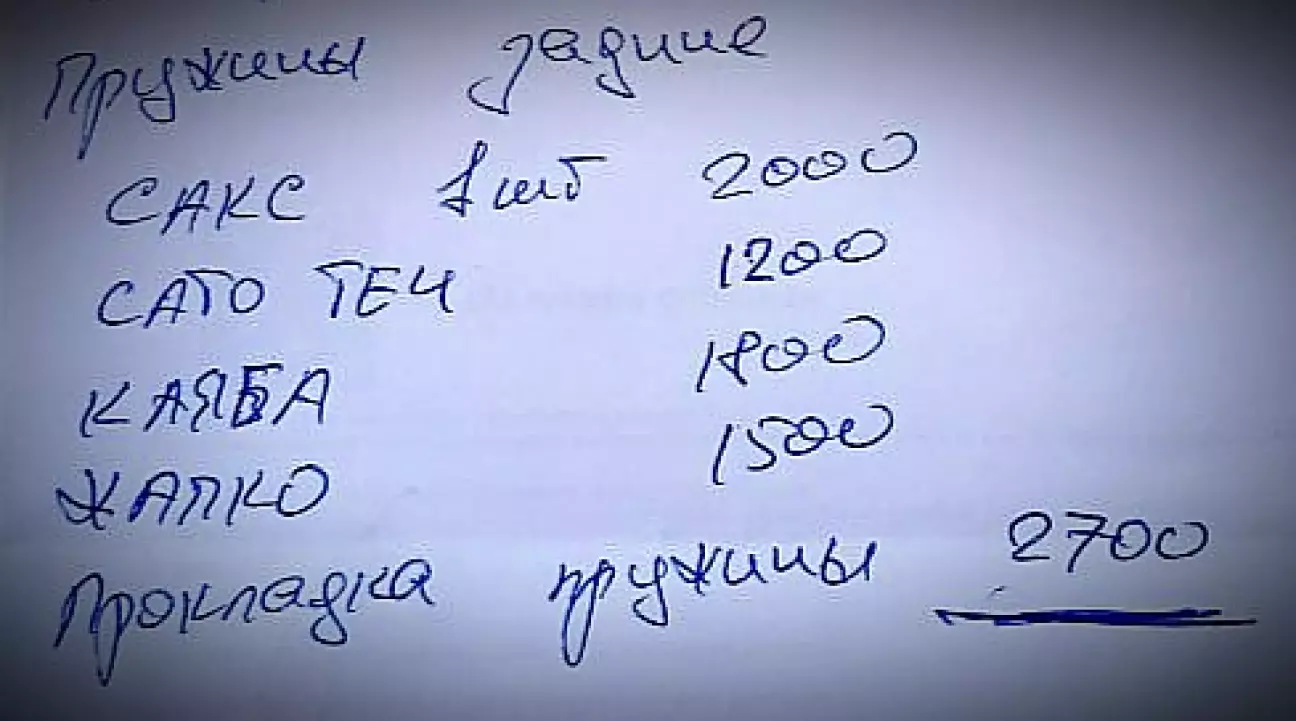 Пружины задние
САКС 1 шт 2000
САТО ТЕЧ 1200
КАЯБА 1800
ЖАПКО 1500
Прокладка пружины 2700